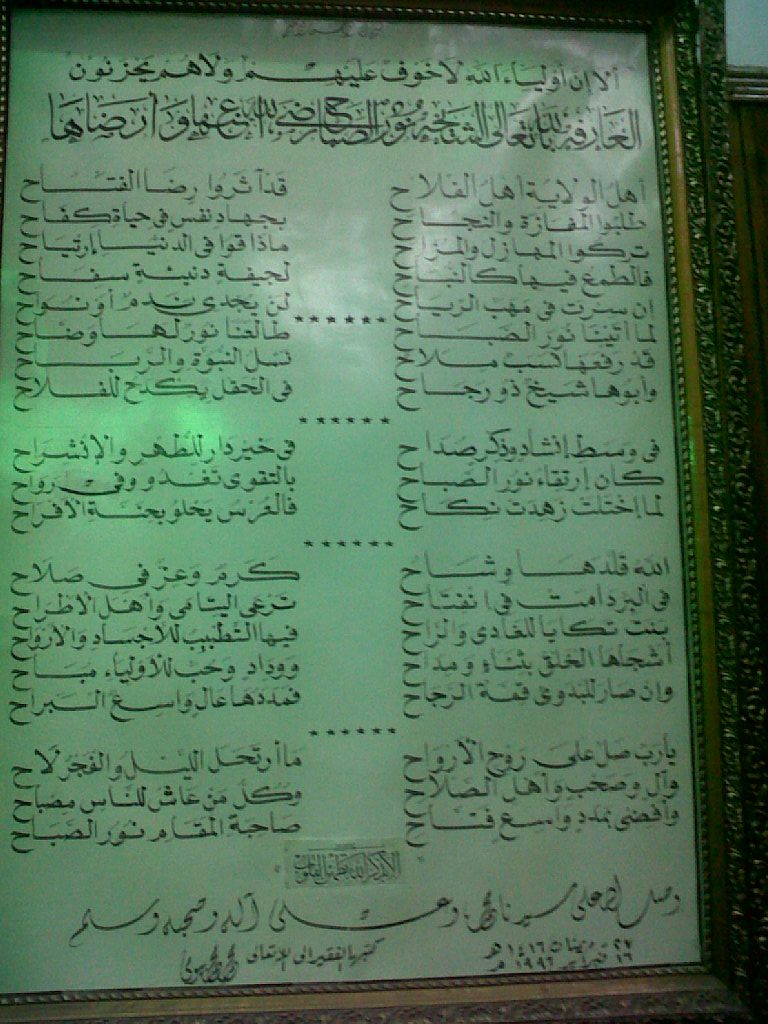 ألا إن أولياء الله لا خوف عليهم ولا هم يحزنون
العارفة بالله تعالى الشيخة نور الصباح رضي الله عنها وأرضاها
أهل الولاية أهل الفلاح قد آثروا رضا الفتاح
طلبوا المفازة والنجاح بجهاد نفس في حياة كفاح
تركوا المهازل والمزاح ماذا قوا في الدنيا إرتياح
فالطمع فيها كالنباح لجيفة دنيئة سفاح
إن سرت في مهب الرياح لن يجدي ندم أو نواح
******
لما أتينا نور الصباح طالعنا نور لها وضاح
قد رفعها نسب ملاح نسل النبوة والرباح
وأبوها شيخ ذو رجاح في الحقل يكدح للفلاح
******
في وسط إنشاد وذكر صداح في خير دار للطهر والإنشراح
كان إرتقاء نور الصباح بالتقوى تغدو وفي رواح
لما إختلت زهدت نكاح فالعرس يحلو بجنة الأفراح
******
الله قلدها وشاح كرم وعز في صلاح
في البر دامت في انفتاح ترعى اليتامى وأهل الاطراح
بنت تكايا للغادي والراح فيها التطبيب للأجساد والأرواح
أشجاها الخلق بثناء ومداح ووداد وحب للأولياء مباح
وان صار للبدوي قمة الرجاح فمددها عال واسع البراح
******
يارب صل على روح الأرواح ما أرتحل الليل والفجر لاح
وآل وصحب وأهل الصلاح وكل من عاش للناس مصباح
وأفضى بمدد واسع فتاح صاحبة المقام نور الصباح
ألا بذكر الله تطمئن القلوب
وصل الله على سيدنا محمد وعلى آله وصحبه وسلم
كتبها الفقير إلى الله تعالى
٢٧ رمضان ١٤١٦ هـ
١٦ فبراير ١٩٩٦ م